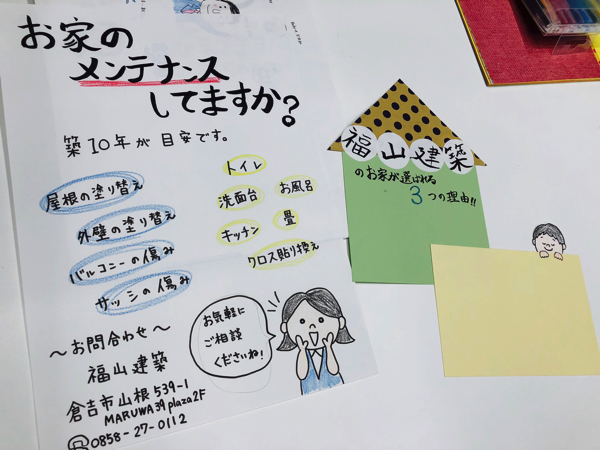 お家の
メンテナンス
してますか？
築10年が目安です。
屋根の塗り替え
外壁の塗り替え
バルコニーの傷み
サッシの傷み
トイレ
洗面台
お風呂
キッチン
畳
クロス貼り換え
お気軽に
ご相談
くださいね!
〜お問合わせ〜
福山建築
倉吉市山根539-1
MARUWA39plaza2F
☎0858-27-0112
福山建築
のお家が選ばれる
3つの理由!!